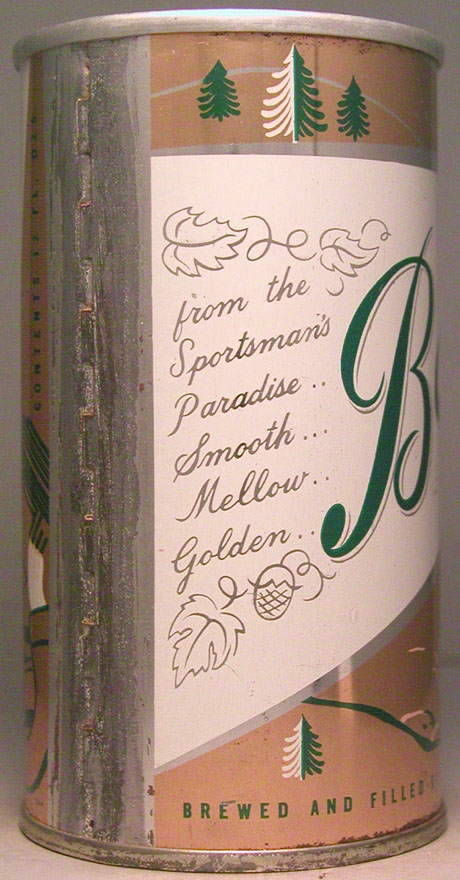 CONTENTS 12 FL. OZS
from the
Sportsman's
Paradise..
Smooth...
Mellow..
Golden..
B
BREWED AND FILLED